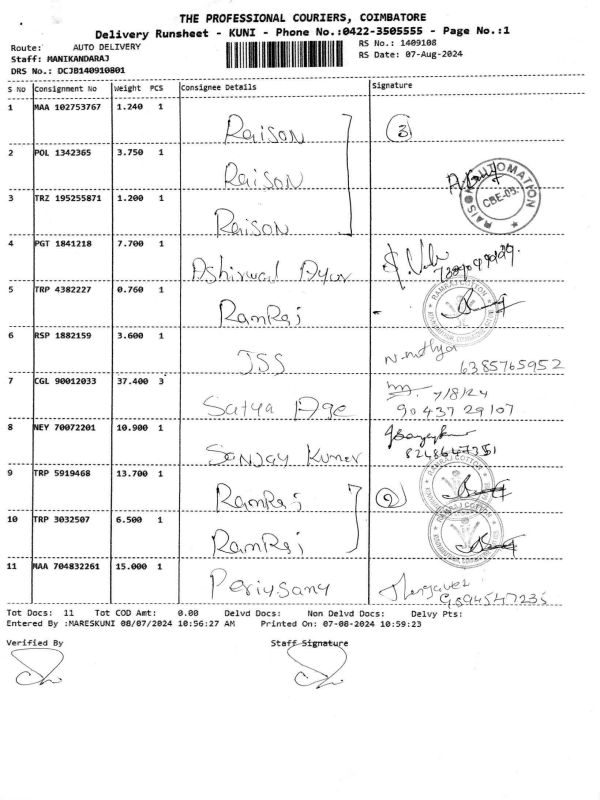 THE PROFESSIONAL COURIERS, COIMBATORE
Delivery Runsheet - KUNI - Phone No.:0422-3505555 - Page No.:1
Route: AUTO DELIVERY
RS No.: 1409108
Staff: MANIKANDARAJ
RS Date: 07-Aug-2024
DRS No.: DCJB140910801
S No Consignment No Weight PCS Consignee Details Signature
1 MAA 102753767 1.240 1 Raison 3
2 POL 1342365 3.750 1 Raison
RAISON AUTOMATION CBE-05.
3 TRZ 195255871 1.200 1 Raison
4 PGT 1841218 7.700 1 Ashirwad Ayur
5 TRP 4382227 0.760 1 RamRaj
RAMRAJ COTTON
6 RSP 1882159 3.600 1 JSS N-nithya 6385765952
7 CGL 90012033 37.400 3 Satya Age 7/8/24
90437 29107
8 NEY 70072201 10.900 1 Sanjay Kumar
8248647351
9 TRP 5919468 13.700 1 RamRaj 2
RAMRAJ COTTON
10 TRP 3032507 6.500 1 RamRaj
RAMRAJ COTTON
11 MAA 704832261 15.000 1 Periysamy
Tot Docs: 11 Tot COD Amt: 0.00 Delvd Docs: Non Delvd Docs: Delvy Pts:
Entered By :MARESKUNI 08/07/2024 10:56:27 AM Printed On: 07-08-2024 10:59:23
Verified By Staff Signature